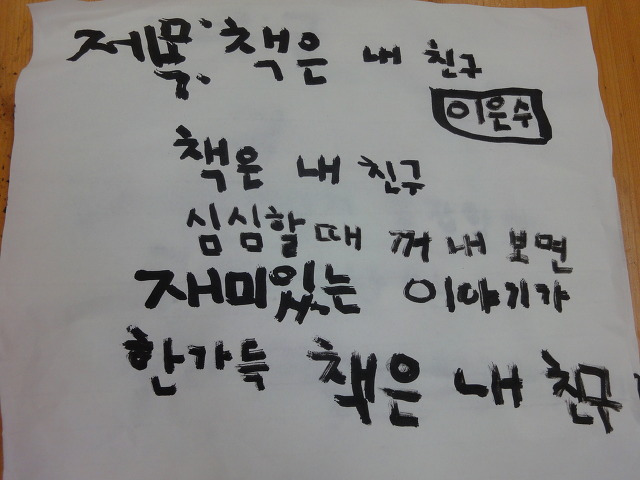 제목: 책은 내 친구
이은수
책은 내 친구
심심할 때 꺼내 보면
재미있는 이야기가
한가득 책은 내 친구